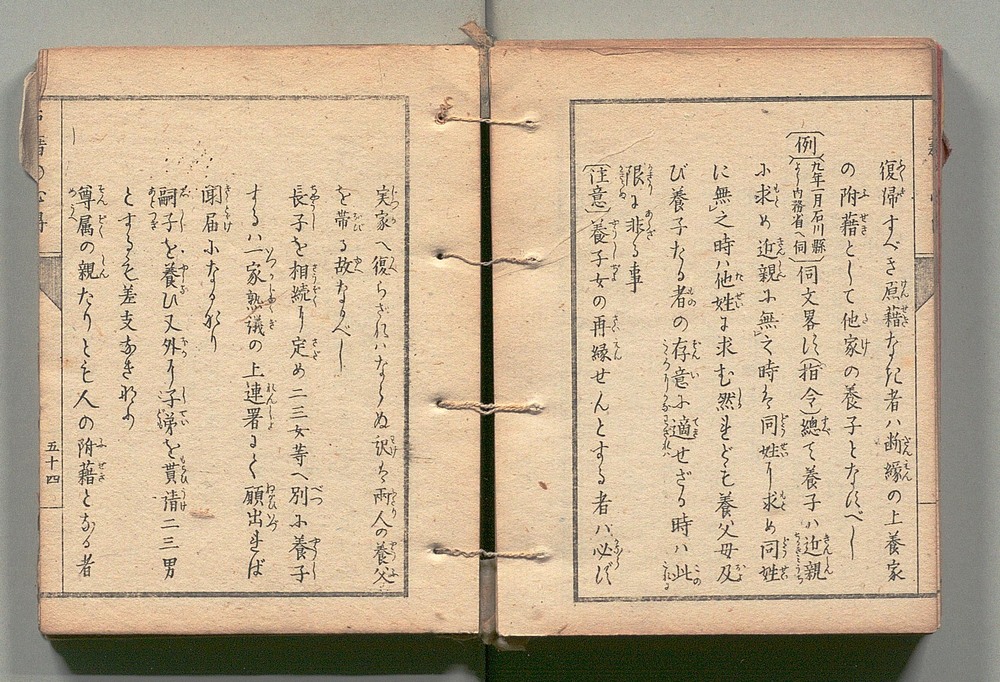 復帰すべき原籍なき者ハ断縁の上養家
の附藉として他家の養子となすべし
〔例〕九年二月石川縣より内務省へ伺〕伺文畧す〔指令〕總て養子ハ近親
に求め近親に無之時は同姓より求め同姓
に無之時ハ他姓に求む然れども養父母及
び養子たる者の存意に適せざる時ハ此
限に非る事
〔注意〕養子女の再縁せんとする者ハ必ず
実家へ復らざれハならぬ訳は兩人の養父
を帯る故なるべし
長子を相続り定め二三女等へ別に養子
するハ一家熟議の上連署にて願出れば
聞届になるなり
嗣子を養ひ又外より子弟を貰請二三男
とするも差支なきなり
尊属の親たりとも人の附藉となる者
五十四